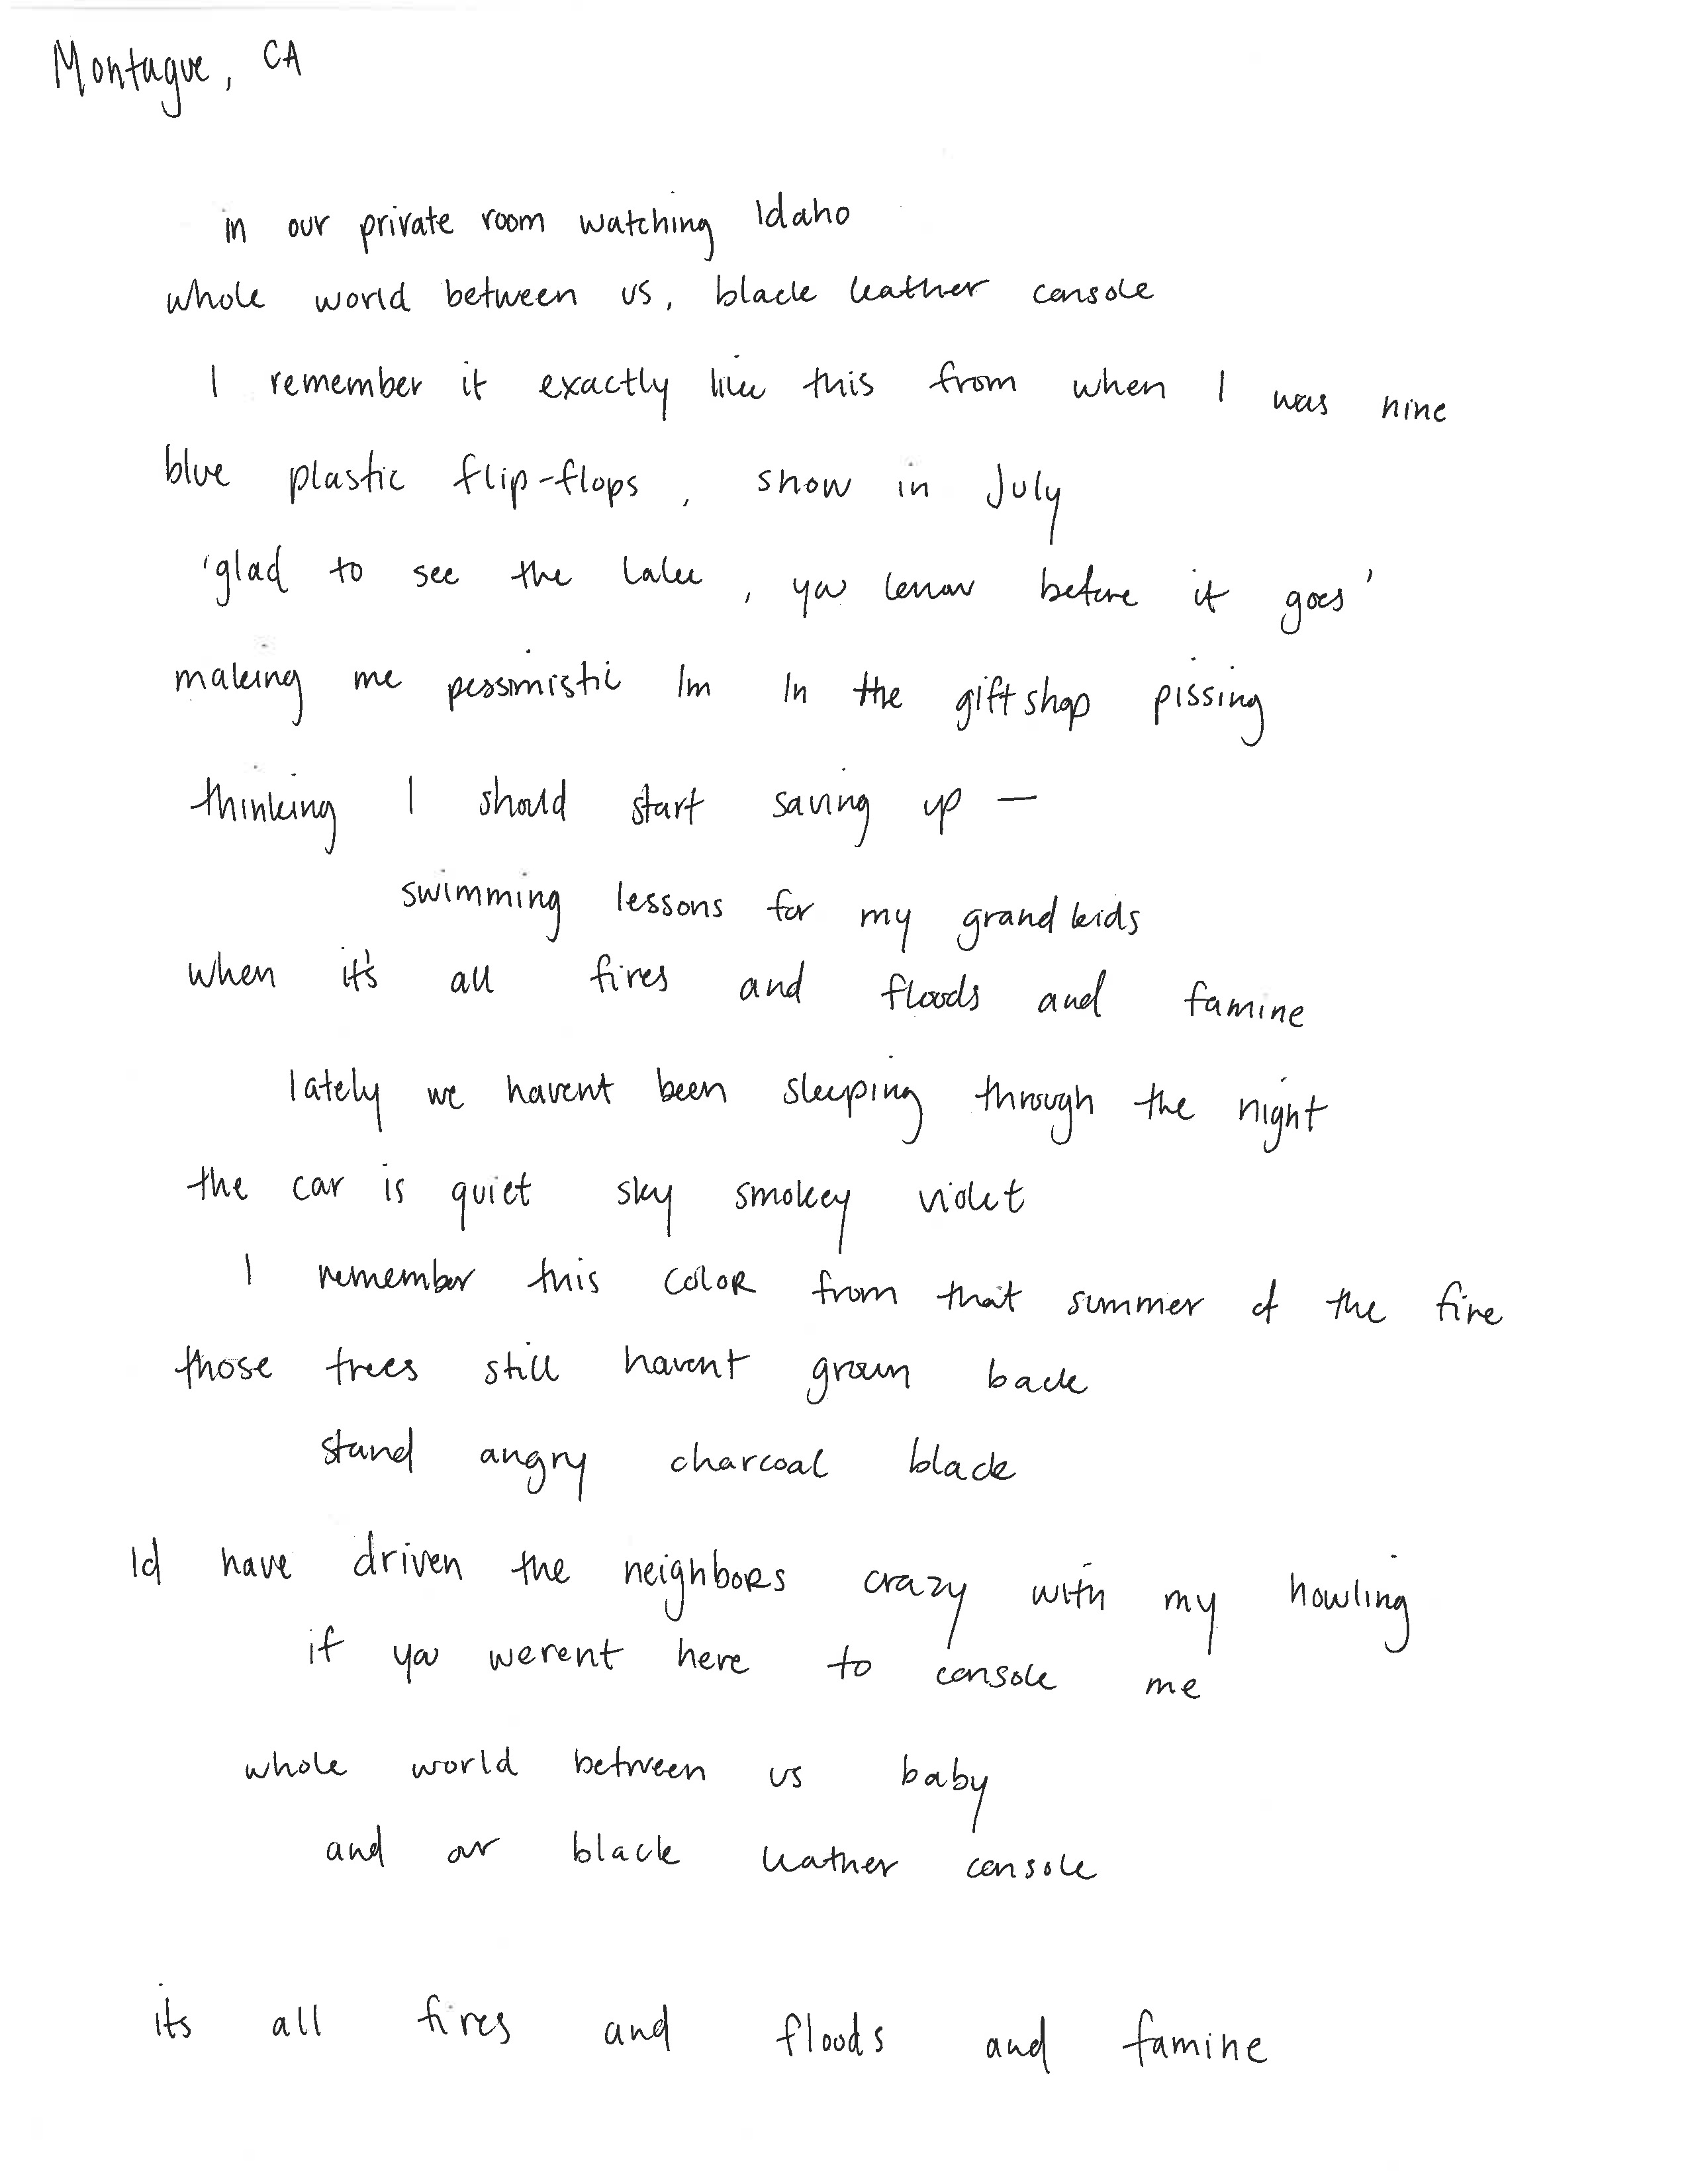 Montague, CA
in our private room watching Idaho
whole world between us, black leather console
I remember it exactly like this from when I was nine
blue plastic flip-flops, snow in July
'glad to see the lake, you know before it goes'
making me pessimistic Im in the giftshop pissing
thinking I should start saving up —
swimming lessons for my grandkids
when it's all fires and floods and famine
lately we havent been sleeping through the night
the car is quiet sky smokey violet
I remember this color from that summer of the fire
those trees still havent grown back
stand angry charcoal black
Id have driven the neighbors crazy with my howling
if you werent here to console me
whole world between us baby
and our black leather console
its all fires and floods and famine